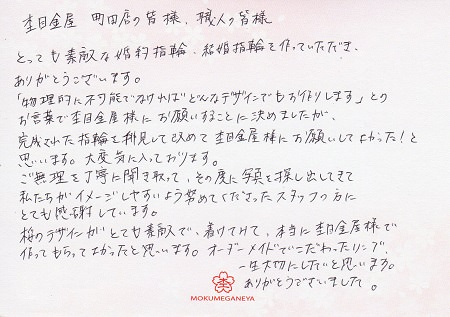 杢目金屋 町田店の皆様、職人の皆様
とっても素敵な婚約指輪、結婚指輪を作っていただき、
ありがとうございます。
「物理的に不可能でなければどんなデザインでもお作りします」との
お言葉で杢目金屋様にお願いすることに決めましたが、
完成された指輪を拝見して改めて杢目金屋様にお願いしてよかった！と
思います。大変気に入っております。
ご無理を丁寧に聞き取って、その度に を探し出してきて
私たちがイメージしやすいよう努めてくださったスタッフの方に
とても感謝しています。
桜のデザインがとても素敵で、着けてみて、本当に杢目金屋様で
作ってもらってよかったと思います。オーダーメイドでこだわったリング、
一生大切にしたいと思います。
ありがとうございました。
MOKUMEGANEYA